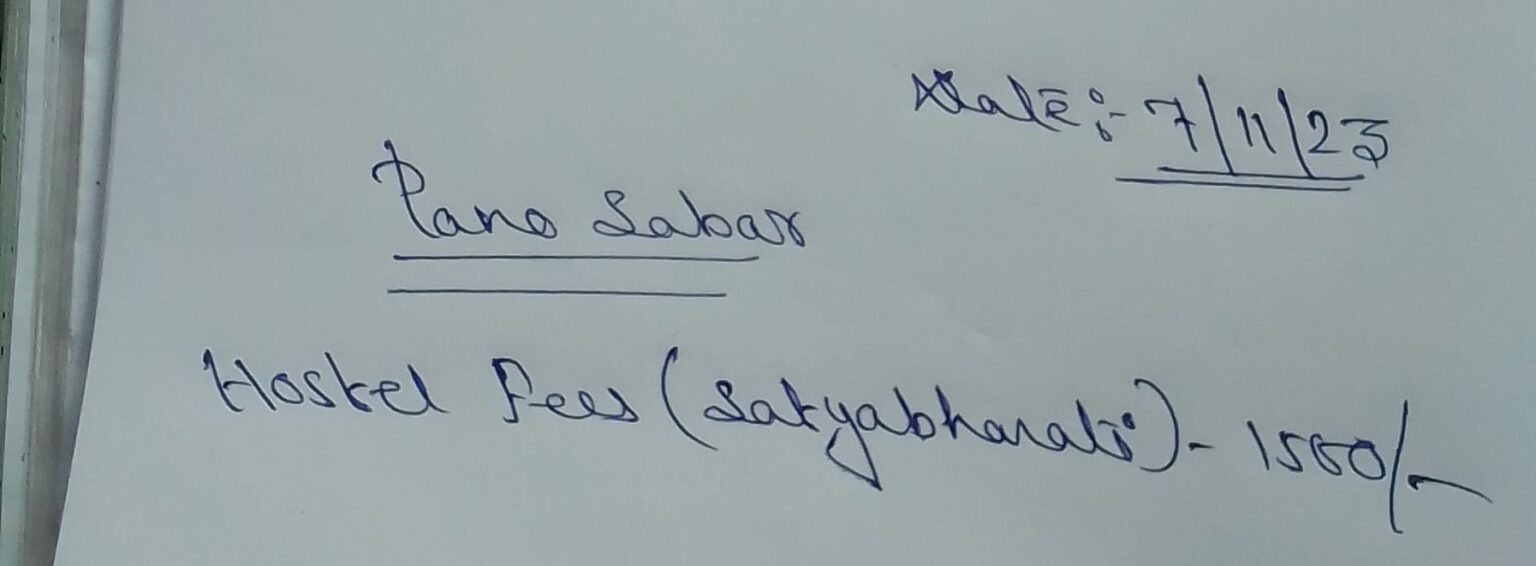 Date:- 7/11/23
Pano Sabar
Hostel Fees (Satyabharati) - 1500/-